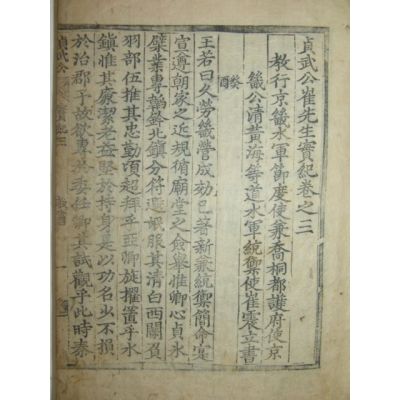 貞武公崔先生實紀卷之三
教行京畿水軍節度使兼喬桐都護府使京
畿公清黃海等道水軍統禦使崔震立書
癸酉
王若曰久勞畿營成効已著新兼統禦簡命寔
宣遵朝家之近規循廟堂之僉舉惟卿心貞氷
檗業專韜鈐北鎮分符邊氓服其清白西關負
羽部伍推其忠勤頃超拜乎亞卿旋擢置乎水
鎮惟其廉潔老益堅於持身是以功名必不損
於治郡予故欲專 委任卿其試觀乎此時泰
貞武公 實紀三 教書 一